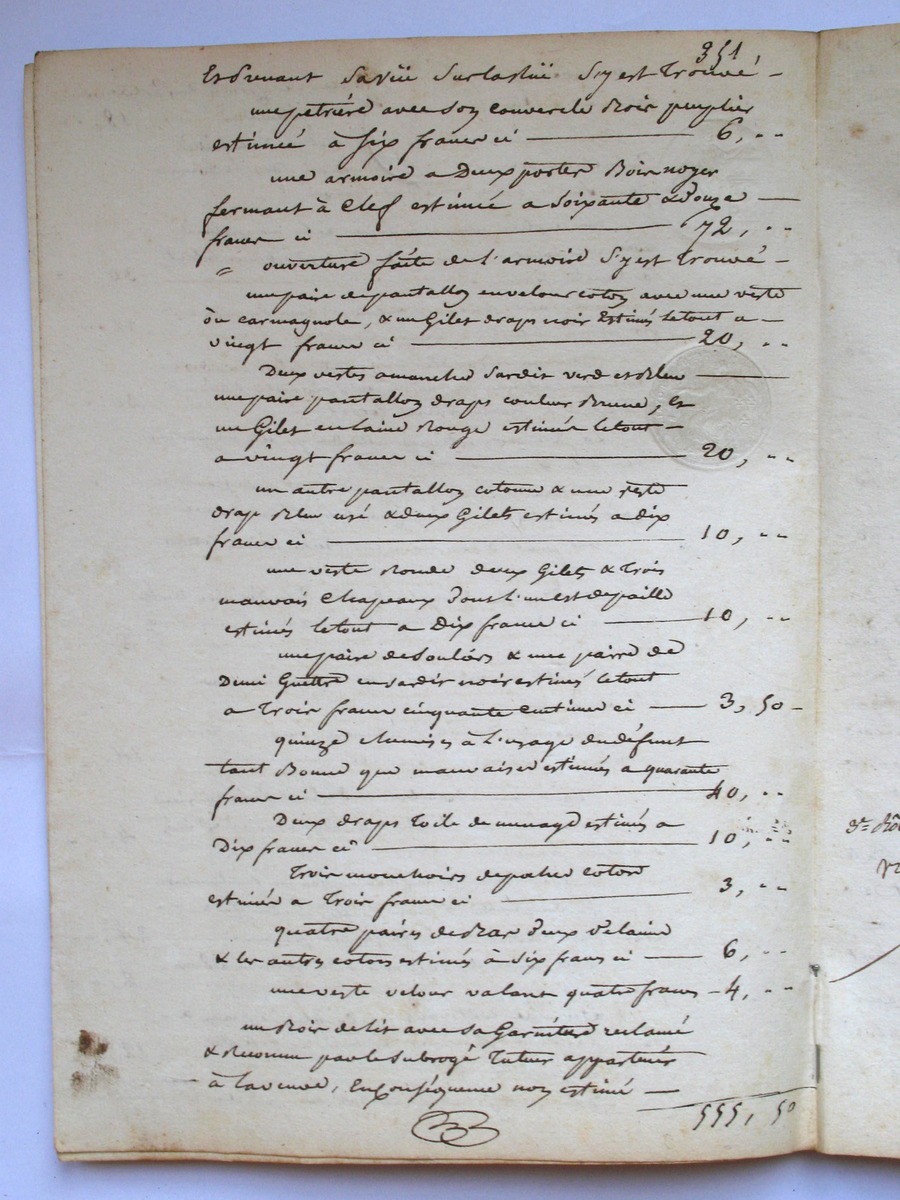 351
Et Prenant Sa vüe Sur la süe S'y est Trouvé —
une petrière avec Son couvercle Bois peuplier
estimée à Six francs ci — 6, ..
une armoire a Deux portes Bois noyer
fermant à Clef estimée a Soixante & Douze —
francs ci — 72, ..
ouverture faite de l'armoire S'y est Trouvé —
une paire de pantallon en velour coton avec une veste
ou carmagnole, & un Gilet draps noir Estimés le tout a —
vingt francs ci — 20, ..
Deux vestes a manches Sardit verd et Bleu —
une paire pantallon draps couleur Brune, et
un Gilet en laine Rouge estimés le tout —
a vingt francs ci — 20, ..
un autre pantallon cotonne & une veste
drap Bleu usé & deux Gilets estimés a dix
francs ci — 10, ..
une veste Ronde deux Gilets & Trois
mauvais Chapeaux Dont l'un est de paille
estimés le tout a Dix francs ci — 10, ..
une paire de Souliers & une paire de
Demi Guettre en Sardis noir estimés le tout
a Trois francs cinquante centimes ci — 3, 50 -
quinze chemises à l'usage du défunt
tant Bonne que mauvaises estimées a quarante
francs ci — 40, ..
Deux draps Toile de menage estimés a
Dix francs ci — 10, ..
Trois mouchoirs de poche coton
estimés a Trois francs ci — 3, ..
quatre paires de Bas Deux de laine
& les autres coton estimés à Six francs ci — 6, ..
une veste velour valant quatre francs — 4, ..
un Bois de lit avec Sa Garniture reclamé
& Reconnu par le Subrogé Tuteur appartenir
à la veuve, En Conséquence non estimé —
555, 50